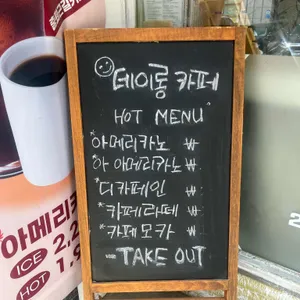 테이롱 카페
HOT MENU
*아메리카노 ₩
*아 아메리카노 ₩
*디카페인 ₩
*카페라떼 ₩
*카페모카 ₩
TAKE OUT
아메리카
ICE 2.
HOT 1.